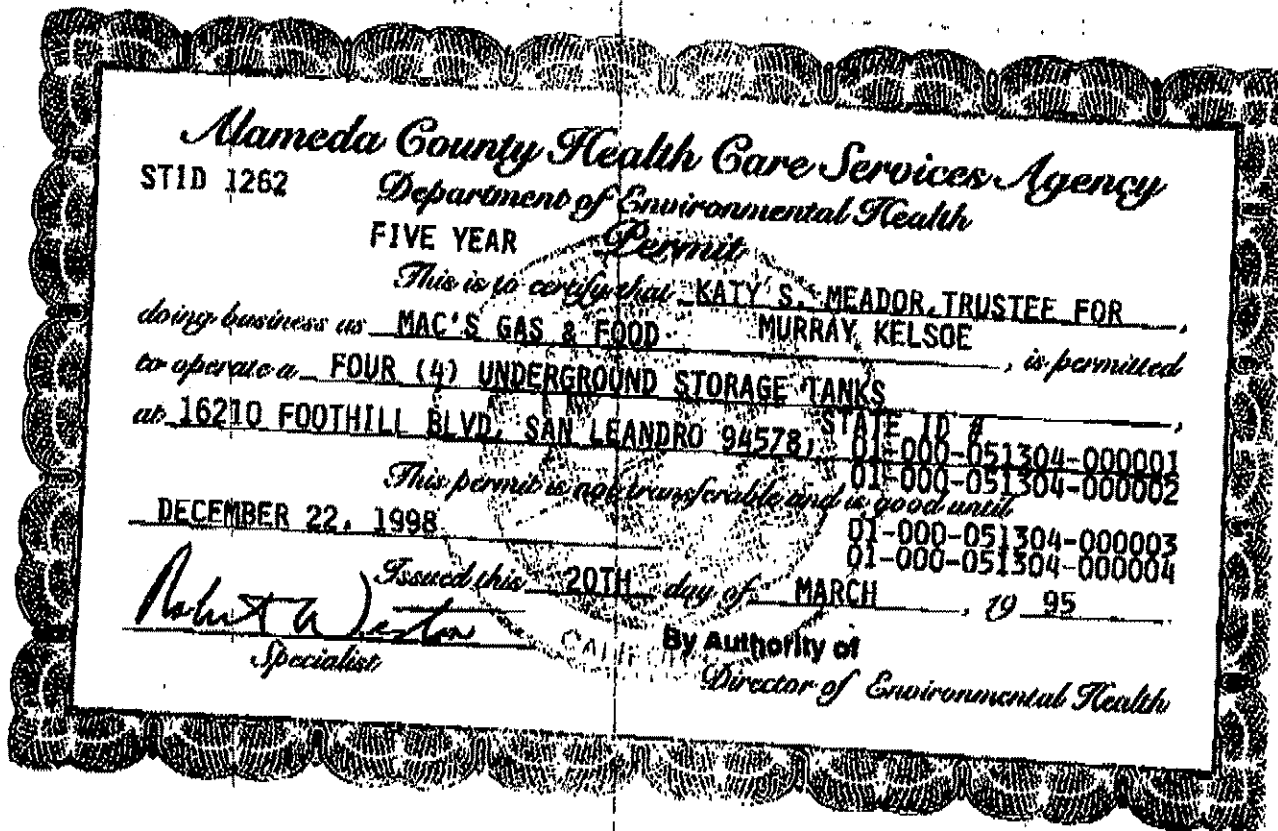 Alameda County Health Care Services Agency
STID 1262
Department of Environmental Health
FIVE YEAR Permit
This is to certify that KATY S. MEADOR, TRUSTEE FOR,
doing business as MAC'S GAS & FOOD MURRAY KELSOE, is permitted
to operate a FOUR (4) UNDERGROUND STORAGE TANKS,
at 16210 FOOTHILL BLVD, SAN LEANDRO 94578, STATE ID #
01-000-051304-000001
01-000-051304-000002
This permit is not transferable and is good until
DECEMBER 22, 1998
01-000-051304-000003
01-000-051304-000004
Issued this 20TH day of MARCH, 19 95
Robert Weston
Specialist
By Authority of
Director of Environmental Health